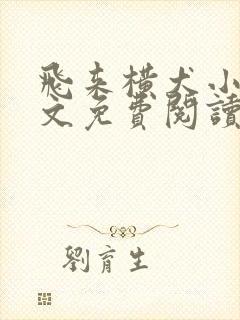 飛來橫犬小
文免費閱讀
劉育生